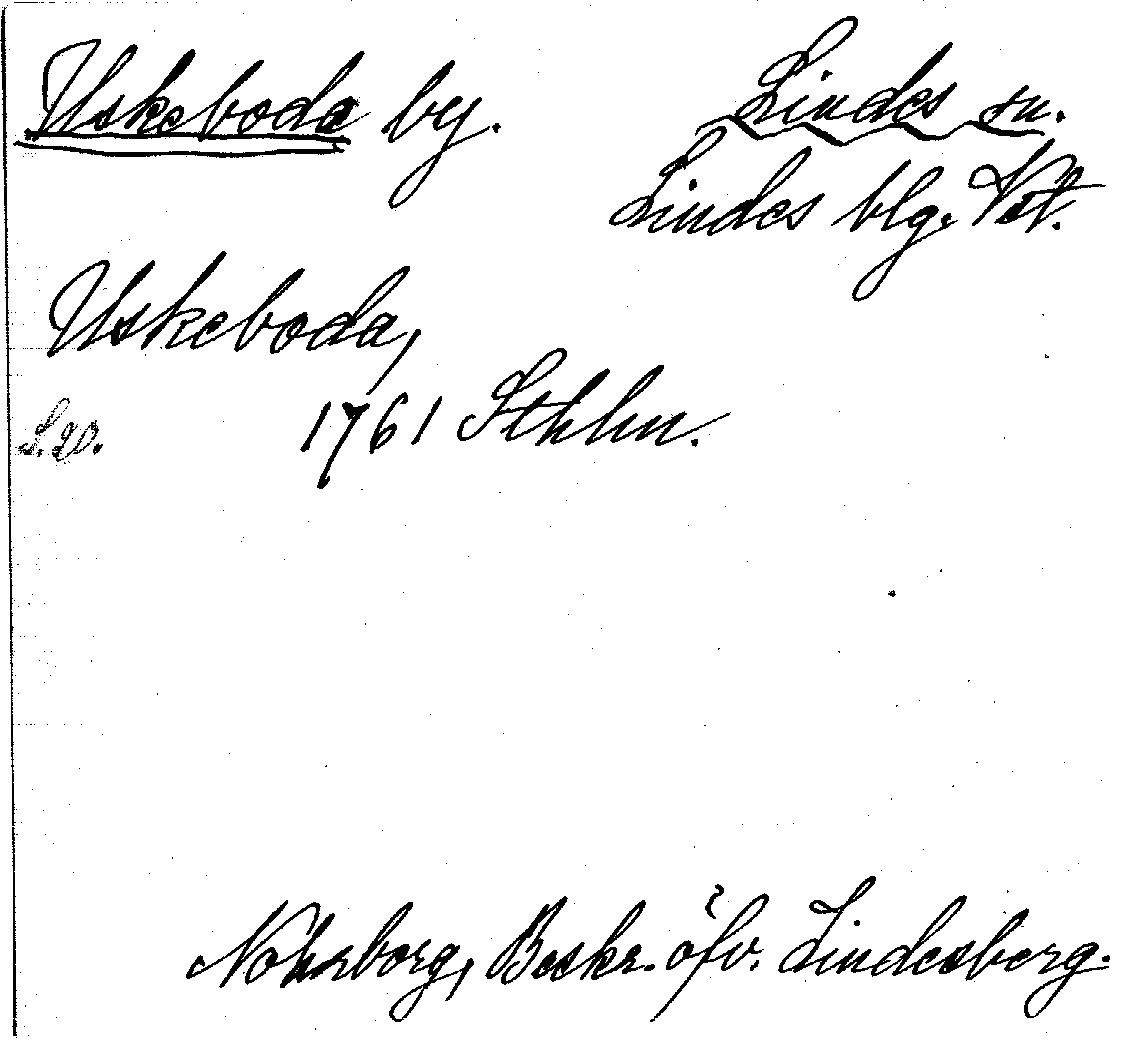 Uskeboda by.
Lindes sn.
Lindes blg. Vst.
Uskeboda,
1761 Sthlm.
S. 20.
Nohrborg, Beskr. öfv. Lindesberg.